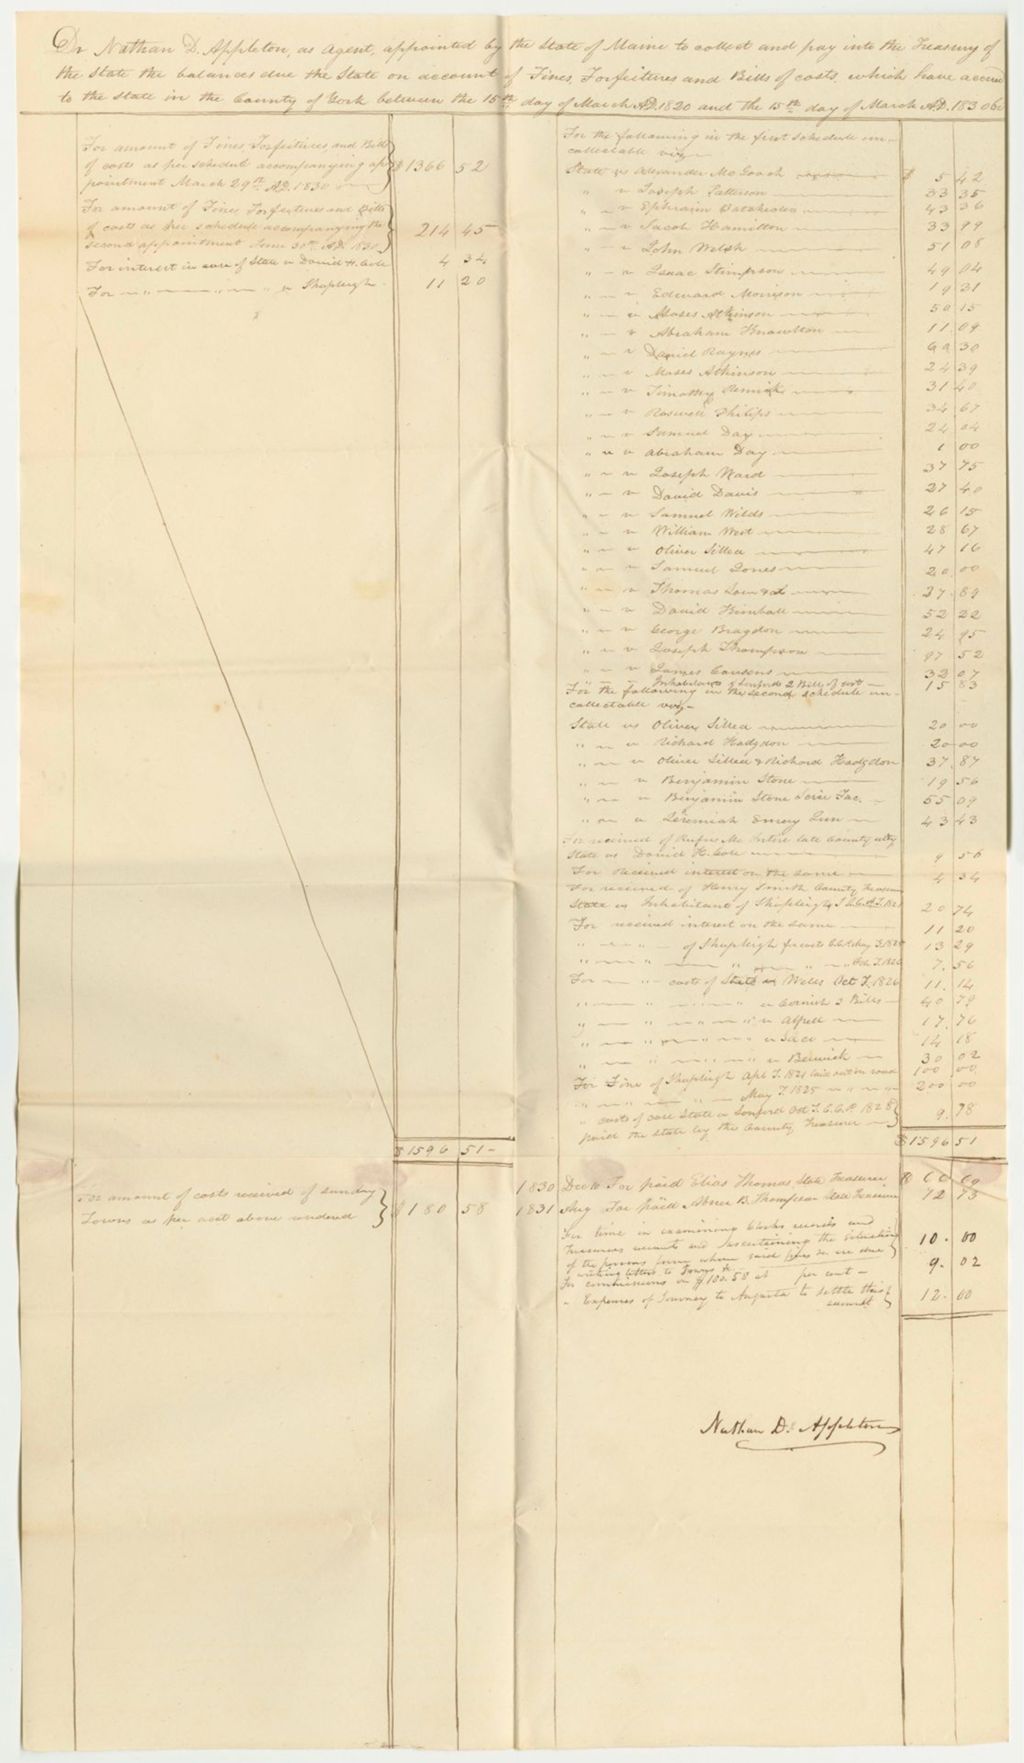 Dr Nathan D. Appleton, as Agent, appointed by the State of Maine to collect and pay into the Treasury of
the State the balances due the State on account of Fines, Forfeitures and Bills of costs, which have accrued
to the State in the County of York between the 15th day of March A.D. 1820 and the 15th day of March A.D. 1830
For amount of Fines Forfeitures and Bills
of costs as per schedule accompanying ap-
pointment March 29th AD. 1830 $1366 52
For amount of Fines Forfeitures and Bills
of costs as per schedule accompanying the
second appointment June 30th AD. 1830 214 45
For interest in case of State v David H. Cole 4 34
For " " v Shapleigh 11 20
$1596 51
For amount of costs received of sundry
Towns as per acct above rendered $180 58
For the following in the first schedule un-
collectable viz
State vs Alexander McGooch $ 5 42
" v Joseph Patterson 33 35
" v Ephraim Batchelder 43 36
" v Jacob Hamilton 33 99
" v John Welsh 51 08
" v Isaac Stimpson 49 04
" v Edward Morrison 19 21
" v Moses Atkinson 50 15
" v Abraham Knowlton 11 09
" v Daniel Raynes 30
" v Moses Atkinson 24 39
" v Timothy Remick 31 40
" v Roswell Philips 34 67
" v Samuel Day 24 04
" v Abraham Day 1 00
" v Joseph Ward 37 75
" v David Davis 27 40
" v Samuel Wilds 26 15
" v William West 28 67
" v Oliver Sillea 47 16
" v Samuel Jones 20 00
" v Thomas 37 89
" v David Kimball 52 22
" v George Bragdon 24 95
" v Joseph Thompson 97 52
" v James Cousens 32 07
" Inhabitants of Sanford 2 Bills of cost 15 83
For the following in the second schedule un-
collectable viz
State vs Oliver Sillea 20 00
" v Richard Hodgdon 20 00
" v Oliver Sillea & Richard Hodgdon 37 87
" v Benjamin Stone 19 56
" v Benjamin Stone Scire Fac. 55 09
" v Jeremiah Emery Jun 43 43
For received of Rufus McIntire late County atty
State vs David H. Cole 9 56
For Received interest on the same 4 34
For received of Henry Smith County Treasurer
State v Inhabitant of Shapleigh 20 74
For received interest on the same 11 20
" " of Shapleigh for costs 13 29
" " 7. 56
For " costs of State v Wells Oct T. 1826 11. 14
" " v Cornish 2 Bills 40 79
" " v Alfred 17. 76
" " v Saco 14 18
" " v Berwick 30 02
For Fine of Shapleigh Apl T. 1821 laid out on road 100 00
" " May T. 1825 " 200 00
" costs of case State v Sanford Oct T. C.C.P. 1828
paid the state by the County Treasurer 9. 78
$1596 51
1830 Dec 10 For paid Elias Thomas State Treasurer
1831 Aug For paid Abner B. Thompson State Treasurer 72 73
For time in examining Clerks records and
Treasurers accounts and ascertaining the situation
of the persons from whom said fines &c are due
writing letters to Towns &c 10. 00
for commissions on $180.58 at per cent 9. 02
" Expenses of Journey to Augusta to settle this
account 12. 00
Nathan D. Appleton